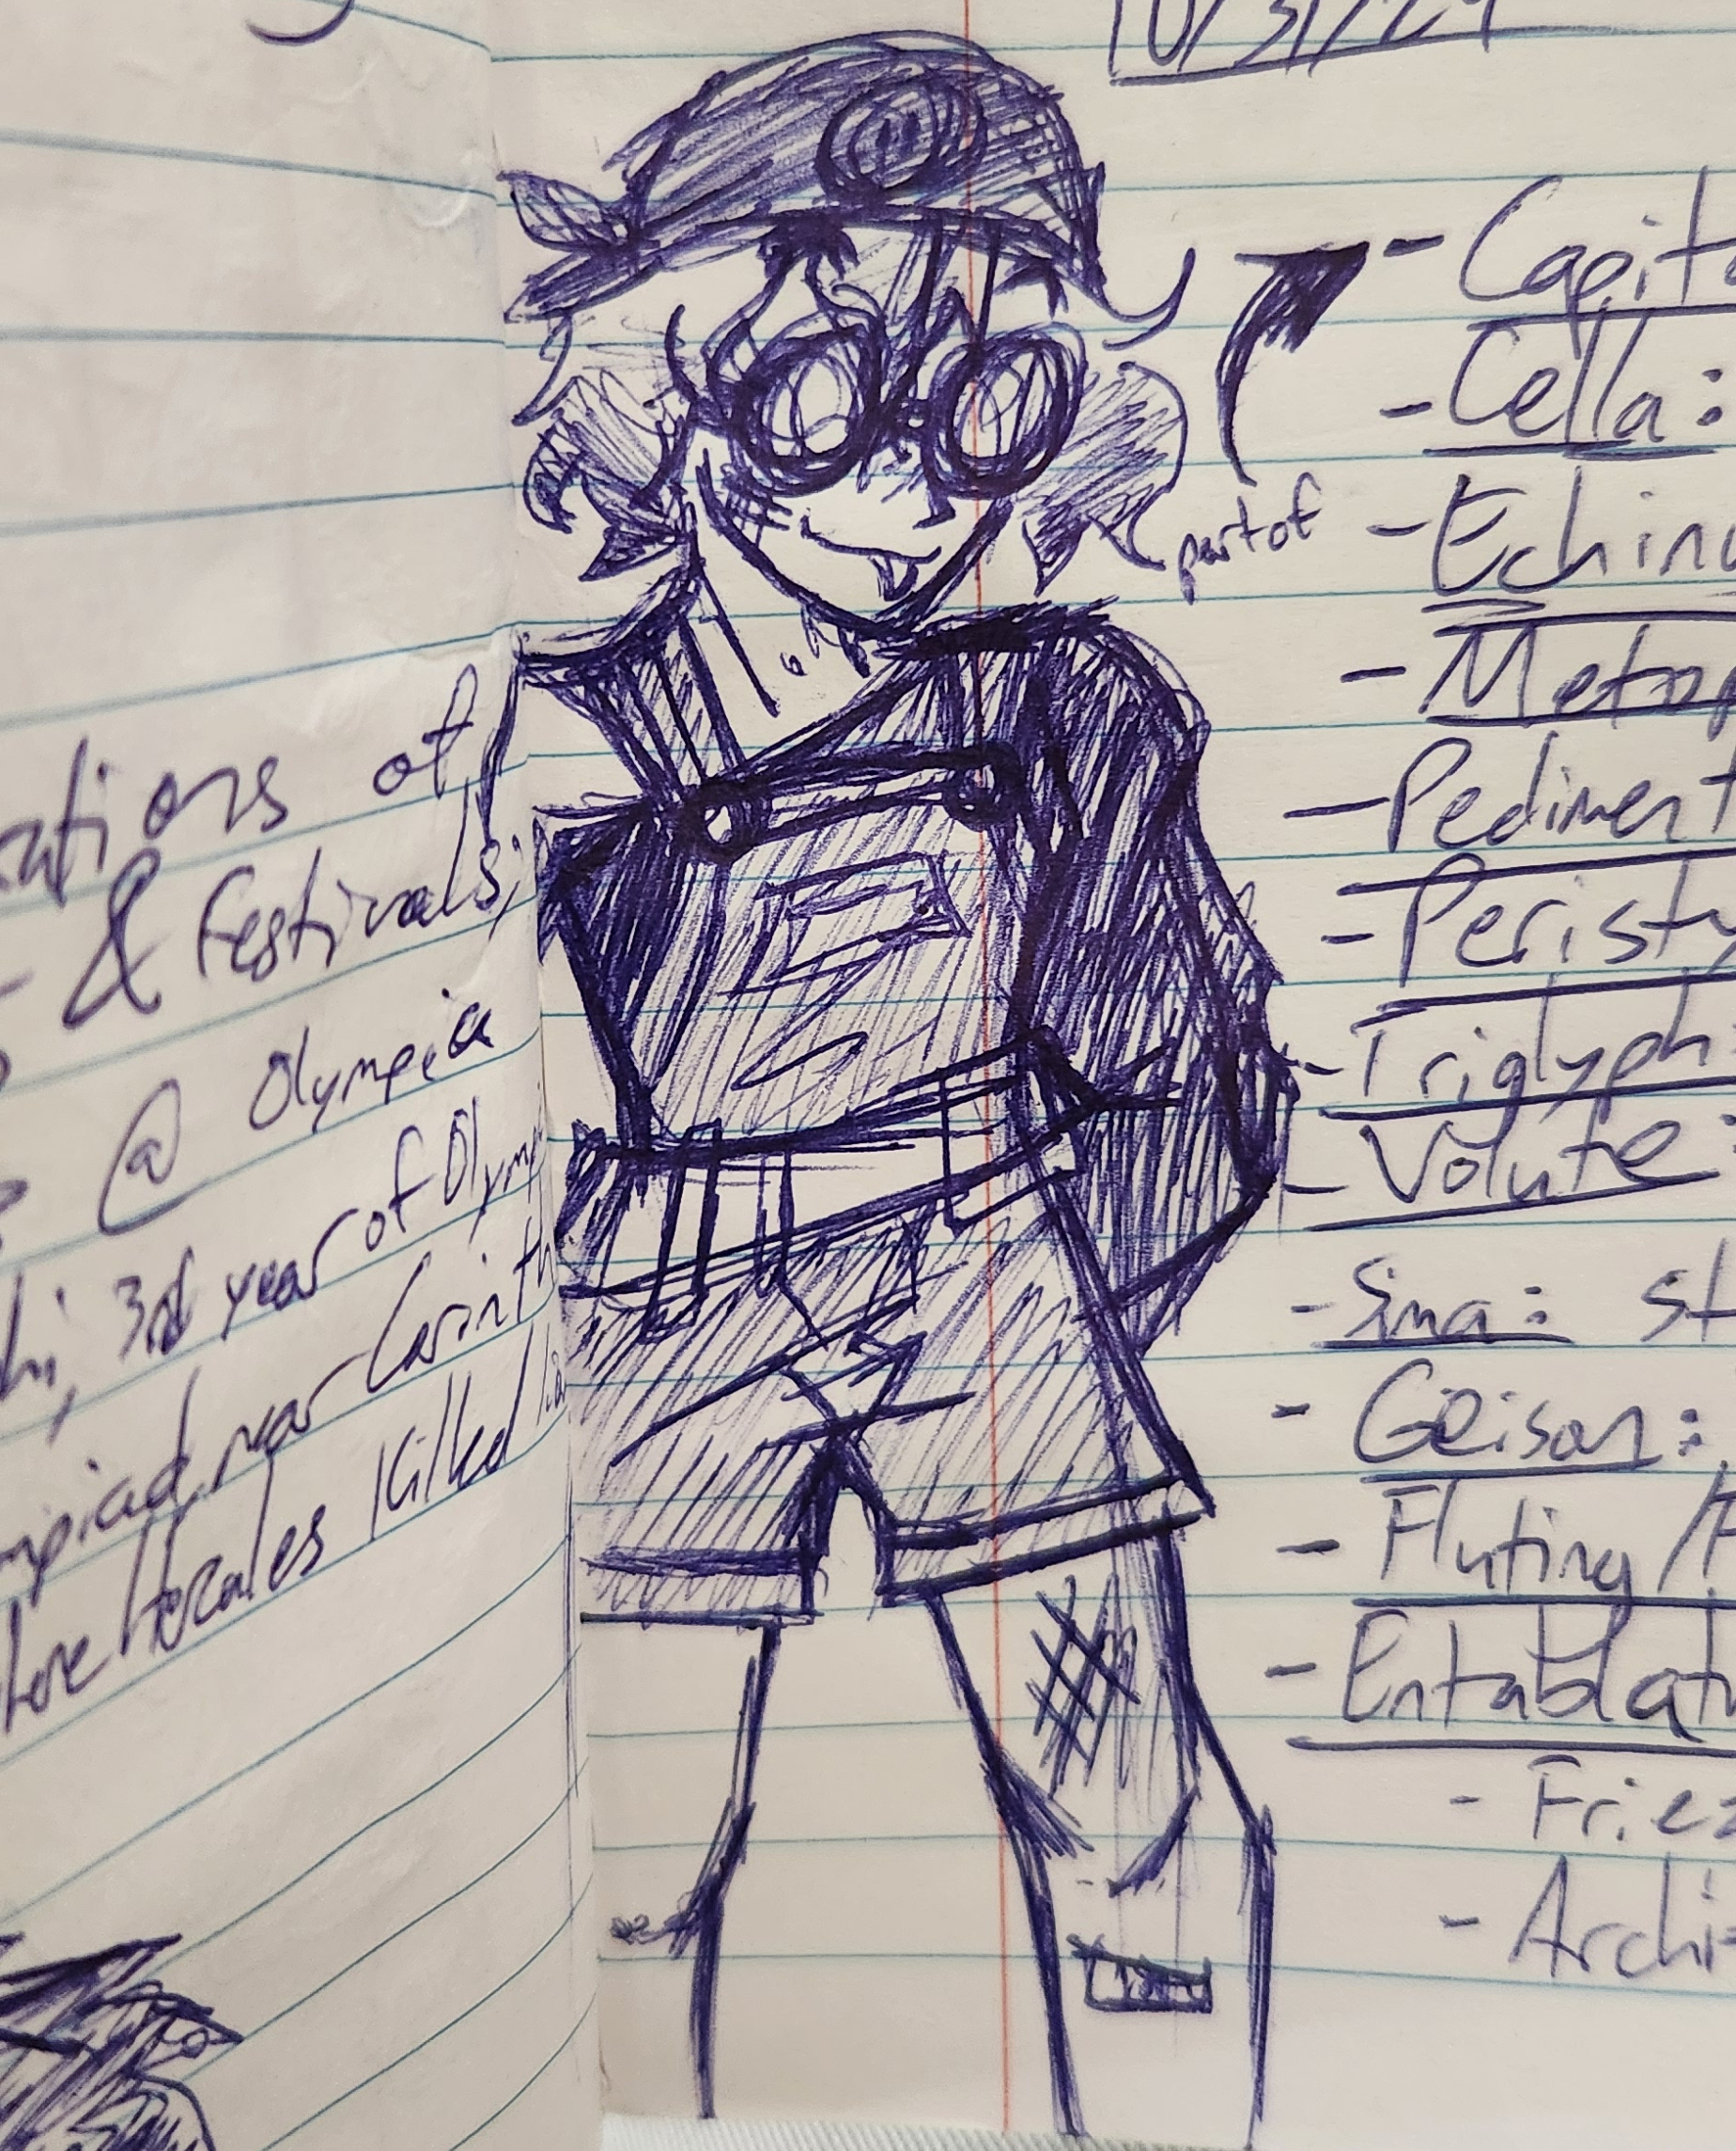 ations of
& festivals;
@ Olympia
3rd year of Olymp
mpiad near Corinth
Killed
10/31/24
- Capit
- Cella:
part of
- Echinu
- Metop
- Pediment
- Peristy
- Triglyph:
- Volute:
- Sima: st
- Geison:
- Fluting/F
- Entablatu
- Friez
- Archi